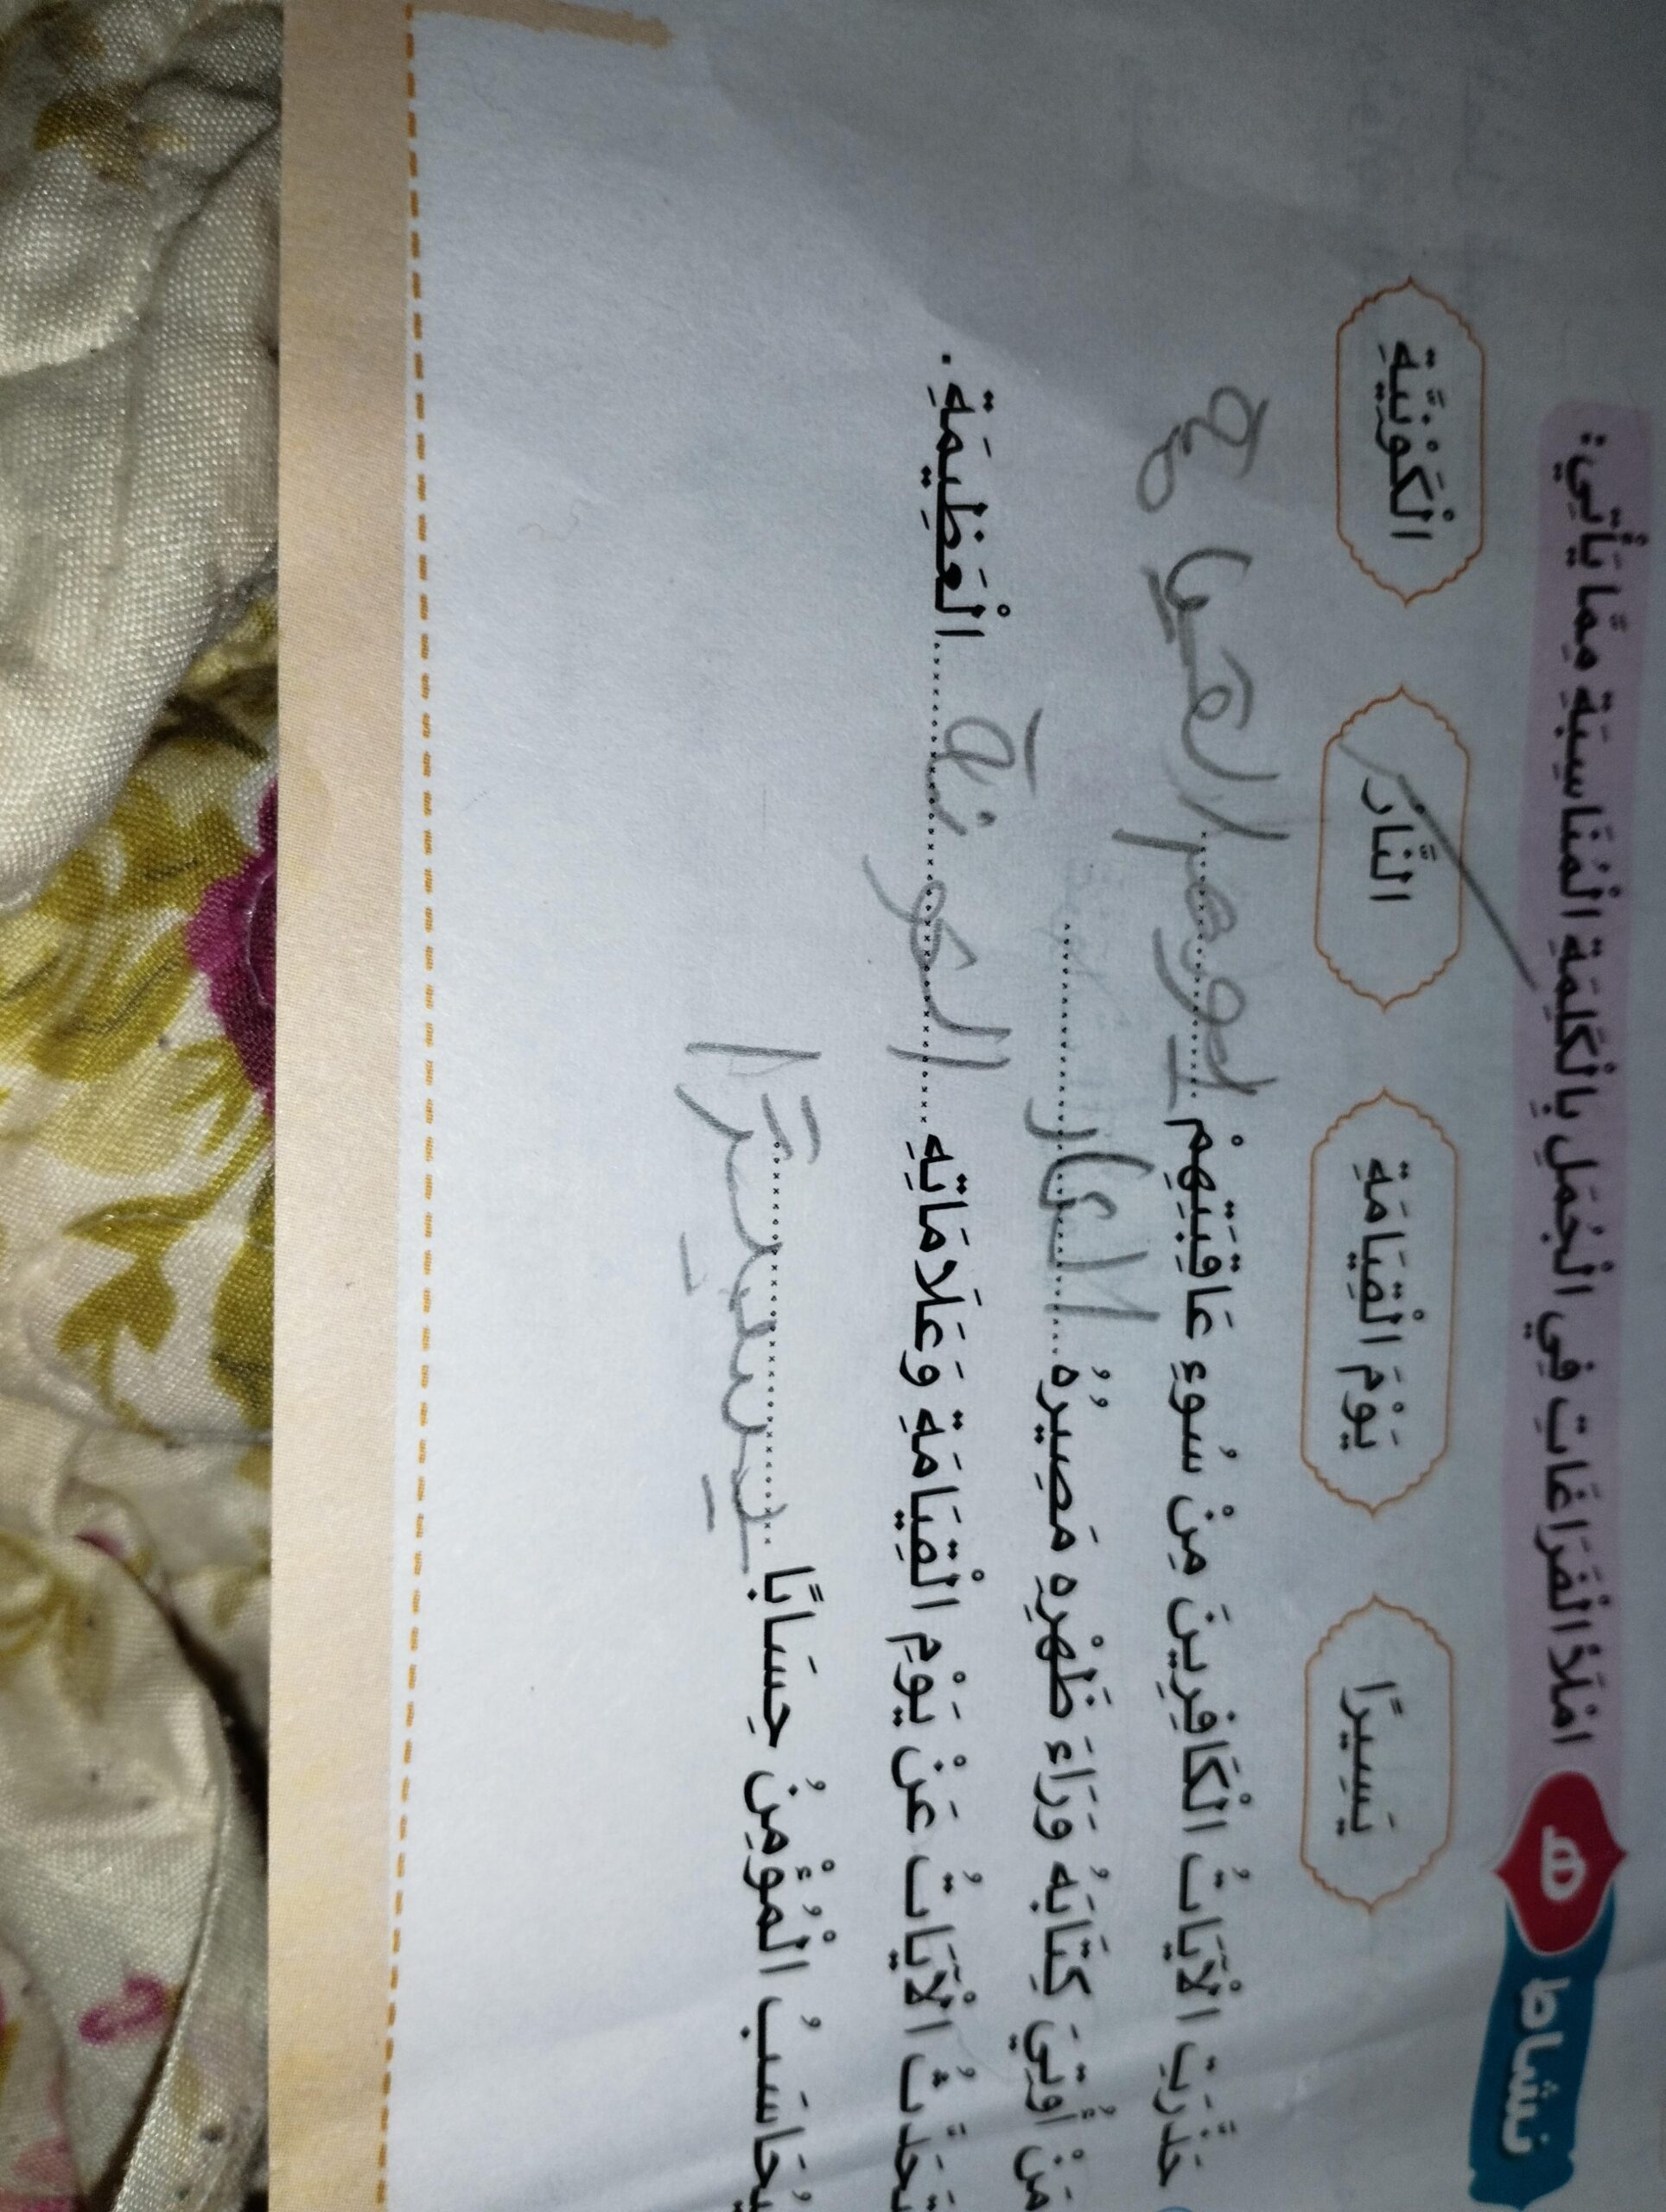 نشاط ٥ امْلَأِ الْفَرَاغَاتِ فِي الْجُمَلِ بِالْكَلِمَةِ الْمُنَاسِبَةِ مِمَّا يَأْتِي:
يَسِيرًا يَوْمَ الْقِيَامَةِ النَّارَ الْكَوْنِيَّةِ
حَذَّرَتِ الْآيَاتُ الْكَافِرِينَ مِنْ سُوءِ عَاقِبَتِهِمْ
مَنْ أُوتِيَ كِتَابَهُ وَرَاءَ ظَهْرِهِ مَصِيرُهُ النار
تَحَدَّثَتْ الْآيَاتُ عَنْ يَوْمِ الْقِيَامَةِ وَعَلَامَاتِهِ الكو نية الْعَظِيمَةِ.
يُحَاسَبُ الْمُؤْمِنُ حِسَابًا يسيرًا